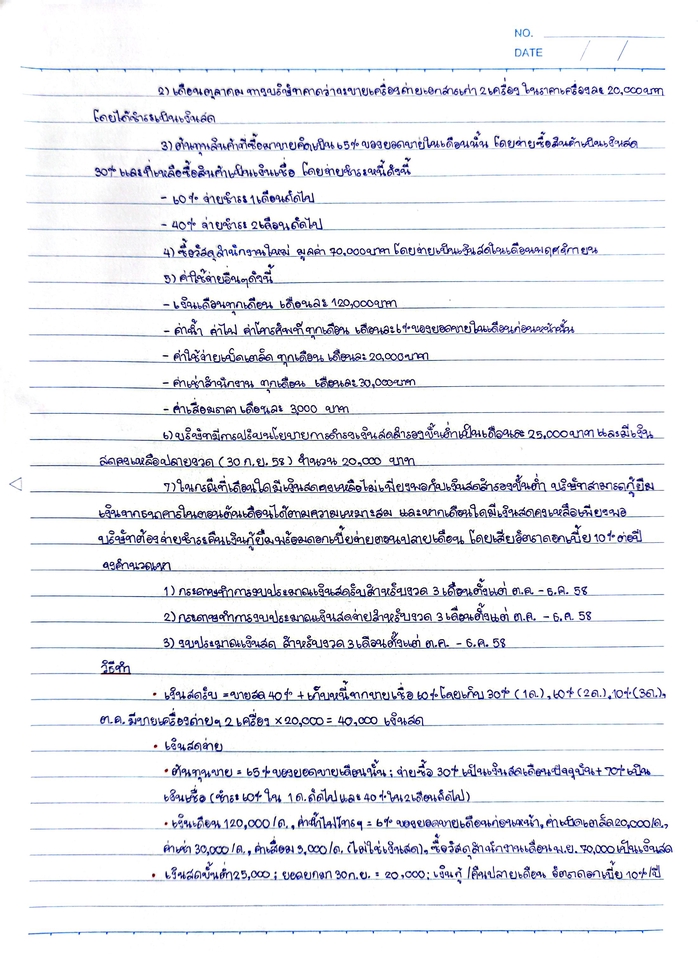 NO.
DATE / /
2) เดือนตุลาคม ทางบริษัทคาดว่าจะขายเครื่องถ่ายเอกสารเก่า 2 เครื่อง ในราคาเครื่องละ 20,000 บาท
โดยได้ชำระเป็นเงินสด
3) ต้นทุนสินค้าที่ซื้อมาขายคิดเป็น 65% ของยอดขายในเดือนนั้น โดยจ่ายซื้อสินค้าเป็นเงินสด
30% และที่เหลือซื้อสินค้าเป็นเงินเชื่อ โดยจ่ายชำระหนี้ดังนี้
- 60% จ่ายชำระ 1 เดือนถัดไป
- 40% จ่ายชำระ 2 เดือนถัดไป
4) ซื้อวัสดุสำนักงานใหม่ มูลค่า 70,000 บาท โดยจ่ายเป็นเงินสดในเดือนพฤศจิกายน
5) ค่าใช้จ่ายอื่นๆดังนี้
- เงินเดือนทุกเดือน เดือนละ 120,000 บาท
- ค่าน้ำ ค่าไฟ ค่าโทรศัพท์ ทุกเดือน เดือนละ 6% ของยอดขายในเดือนก่อนหน้านั้น
- ค่าใช้จ่ายเบ็ดเตล็ด ทุกเดือน เดือนละ 20,000 บาท
- ค่าเช่าสำนักงาน ทุกเดือน เดือนละ 30,000 บาท
- ค่าเสื่อมราคา เดือนละ 3,000 บาท
6) บริษัทมีการปรับนโยบายการดำรงเงินสดสำรองขั้นต่ำเป็นเดือนละ 25,000 บาท และมีเงิน
สดคงเหลือปลายงวด (30 ก.ย. 58) จำนวน 20,000 บาท
7) ในกรณีที่เดือนใดมีเงินสดคงเหลือไม่เพียงพอกับเงินสดสำรองขั้นต่ำ บริษัทสามารถกู้ยืม
เงินจากธนาคารในตอนต้นเดือนได้ตามความเหมาะสม และหากเดือนใดมีเงินสดคงเหลือเพียงพอ
บริษัทต้องจ่ายชำระคืนเงินกู้ยืมพร้อมดอกเบี้ยจ่ายตอนปลายเดือน โดยเสียอัตราดอกเบี้ย 10% ต่อปี
จงคำนวณหา
1) กระดาษทำการงบประมาณเงินสดรับสำหรับงวด 3 เดือนตั้งแต่ ต.ค. - ธ.ค. 58
2) กระดาษทำการงบประมาณเงินสดจ่ายสำหรับงวด 3 เดือนตั้งแต่ ต.ค. - ธ.ค. 58
3) งบประมาณเงินสด สำหรับงวด 3 เดือนตั้งแต่ ต.ค. - ธ.ค. 58
วิธีทำ
• เงินสดรับ = ขายสด 40% + เก็บหนี้จากขายเชื่อ 60% โดยเก็บ 30% (1ด.), 60% (2ด.), 10% (3ด.),
ต.ค. มีขายเครื่องถ่ายฯ 2 เครื่อง × 20,000 = 40,000 เงินสด
• เงินสดจ่าย
• ต้นทุนขาย = 65% ของยอดขายเดือนนั้น ; จ่ายซื้อ 30% เป็นเงินสดเดือนปัจจุบัน + 70% เป็น
เงินเชื่อ (ชำระ 60% ใน 1 ด.ถัดไป และ 40% ใน 2 เดือนถัดไป)
• เงินเดือน 120,000/ด., ค่าน้ำไฟโทรฯ = 6% ของยอดขายเดือนก่อนหน้า, ค่าเบ็ดเตล็ด 20,000/ด.,
ค่าเช่า 30,000/ด., ค่าเสื่อม 3,000/ด. (ไม่ใช้เงินสด), ซื้อวัสดุสำนักงานเดือน พ.ย. 70,000 เป็นเงินสด
• เงินสดขั้นต่ำ 25,000 ; ยอดยกมา 30 ก.ย. = 20,000 ; เงินกู้ /คืนปลายเดือน อัตราดอกเบี้ย 10%/ปี